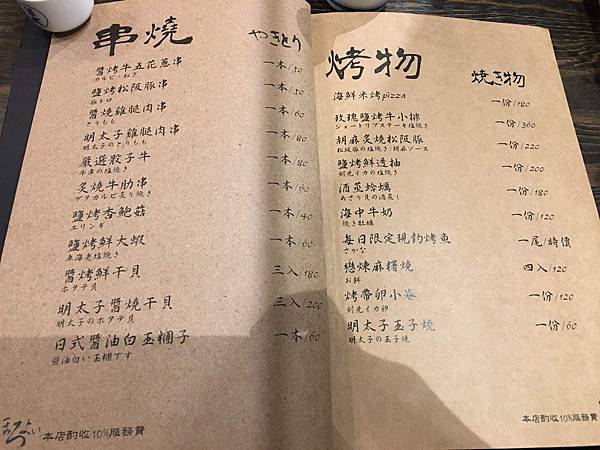 串燒 やきとり
醬烤牛五花蔥串 一本/50
カルビ・ねぎ
鹽烤松阪豚串 一本/50
豚トロ
醬燒雞腿肉串 一本/60
とりもも
明太子雞腿肉串 一本/80
明太子のとりもも
嚴選骰子牛 一本/80
牛串の塩焼き
炙燒牛肋串 一本/60
ゲタカルビ炙り焼き
鹽烤杏鮑菇 一本/40
エリンギ
鹽烤鮮大蝦 一本/60
東海老塩焼き
醬烤鮮干貝 三入/180
ホタテ貝
明太子醬燒干貝 三入/200
明太子のホタテ貝
日式醬油白玉糰子 一本/60
醬油白い玉糰すす
本店酌收10%服務費
烤物 焼き物
海鮮米烤pizza 一份/180
玫瑰鹽烤牛小排 一份/360
ショートリブステーキ塩焼き
胡麻炙燒松阪豚 一份/220
松坂豚の塩焼き/胡麻ソース
鹽烤鮮透抽 一份/200
剣先イカの塩焼き
酒蒸蛤蠣 一份/180
あさり貝の酒蒸し
海中牛奶 一份/120
焼き牡蠣
每日限定現釣烤魚 一尾/時價
さかな
戀煉麻糬燒 四入/120
お餅
烤帶卵小卷 一份/120
剣先イカ卵
明太子玉子燒 一份/60
明太子の玉子焼
本店酌收10%服務費